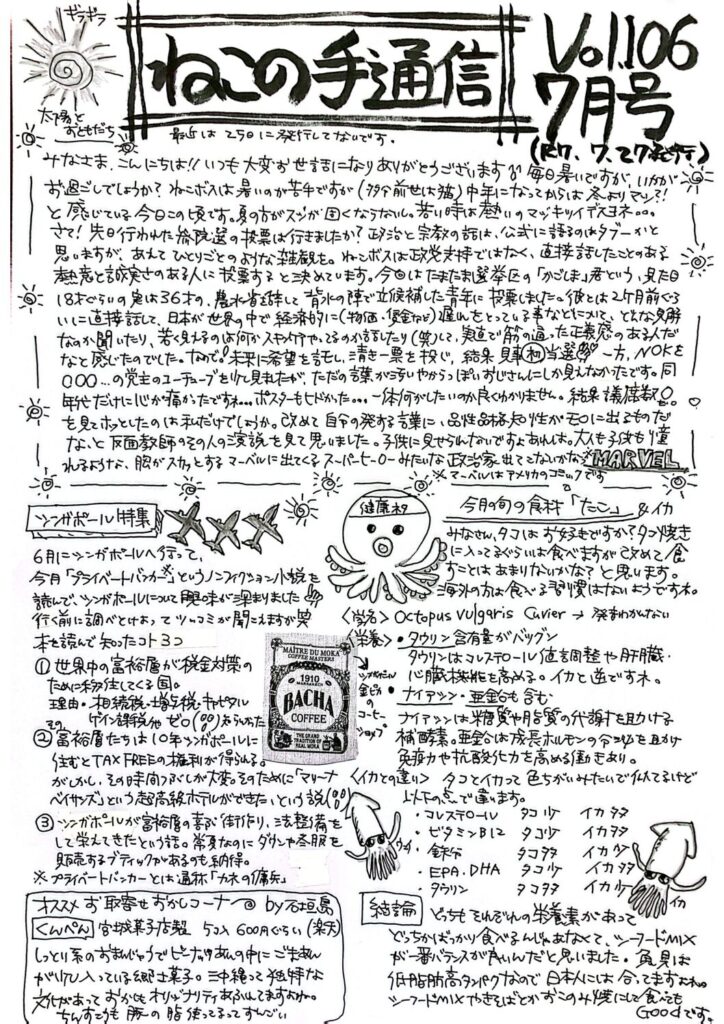 ギラギラ
ねこの手通信
Vol.106
7月号
(R7. 7. 27発行)
太陽と
おともだち
最近は25日に発行してないです。
みなさま、こんにちは!! いつも大変お世話になりありがとうございます 毎日暑いですが、いかが
お過ごしでしょうか? ねこボスは暑いのが苦手ですが(多分前世は猫)中年になってからは冬よりマシ?!
と感じている今日この頃です。夏の方がスジが固くならないし。若い時は熱いのマッキリイデスヨネ。。。
さて! 先日行われた参院選の投票は行きましたか? 政治と宗教の話は、公式に語るのはタブーかと
思いますが、あえてひとりごとのような雑観を。ねこボスは政党支持ではなく、直接話したことのある
熱意と誠実さのある人に投票すると決めています。今回はたまたま選挙区の「かごしま」君という、見た目
18才ぐらいの実は36才の、農水省を辞して背水の陣で立候補した青年に投票しました。彼とは2ヶ月前ぐら
いに直接話して、日本が世界の中で経済的に(物価・賃金など)遅れをとっている事などについて、どんな見解
なのか聞いたり、若く見えるのは何かスキンケアやってるのか話したり(笑)して、実直で筋の通った正義感のある人だ
なと感じたのでした。なので!未来に希望を託し、清き一票を投じ、結果見事初当選 一方、NOKを
〇〇〇...の党主のユーチューブを少し見ましたが、ただの言葉が汚いやからっぽいおじさんにしか見えなかったです。同
年代だけに心が痛かったですね...ポスターもヒドかった... 一体何がしたいのか良くわかりません。結果議席数0。
を見てホッとしたのは私だけでしょうか。改めて自分の発する言葉に、品性品格知性がモロに出るものだ
な、と反面教師のその人の演説を見て思いました。子供に見せられないですよあれは。大人も子供も憧
れるような、胸がスカッとするマーベルに出てくるスーパーヒーローみたいな政治家出てこないかな MARVEL
※マーベルはアメリカのコミックです
シンガポール特集
6月にシンガポールへ行って、
今月「プライベートバンカー※」というノンフィクション小説を
読んで、シンガポールについて興味が深まりました
行く前に調べとけよってツッコミが聞こえますが笑
本を読んで知ったコト3コ
① 世界中の富裕層が税金対策の
ために移住してくる国。
理由・相続税・贈与税・キャピタル
ゲイン課税がゼロ
② 富裕層たちは10年シンガポールに
住むとTAX FREEの権利が得られる。
がしかし、その時間つぶしが大変。そのために「マリーナ
ベイサンズ」という超高級ホテルができた、という説
③ シンガポールが富裕層の喜ぶ街作り、法整備を
して栄えてきたという話。常夏なのにダウンや冬服を
販売するブティックがあるのも納得。
※プライベートバンカーとは通称「カネの傭兵」
MAÎTRE DU MOKA
COFFEE MASTERS
1910
MARRAKECH
BACHA
COFFEE
THE GRAND
TRADITION OF
REAL MOKA
シンガポール
金ピカの
コーヒー
ショップ
健康ネタ
今月の旬の食材「たこ」 & イカ
みなさん、タコはお好きですか? タコ焼き
に入ってるぐらいは食べますが改めて食
すことはあまりないかな? と思います。
海外の方は食べる習慣はないようですね。
〈学名〉 Octopus vulgaris Cuvier → 発音わかんない
〈栄養〉・タウリン含有量がバツグン
タウリンはコレステロール値調整や肝臓・
心臓機能を高める。イカと並ですネ。
・ナイアシン・亜鉛も含む
ナイアシンは糖質や脂質の代謝を助ける
補酵素。亜鉛は成長ホルモンの分泌を助け
免疫力や抗酸化力を高める働きあり。
〈イカとの違い〉 タコとイカって色ちがいみたいで似てるけど
以下の点で違います。
・コレステロール タコ少 イカ多
・ビタミンB12 タコ少 イカ多
・鉄分 タコ多 イカ少
・EPA・DHA タコ少 イカ多
・タウリン タコ多 イカ少
イカ
オススメお取寄せおかしコーナー by 石垣島
くんぺん 宮城菓子店製 5コ入 600円ぐらい(楽天)
しっとり系のおまんじゅうでピーナッツあんの中にごまあん
がいり込い入っている郷土菓子。沖縄って独特な
文化があっておかしもオリジナリティあふれてますよね。
ちんすこうも豚の脂使ってるってすごい
結論
どっちもそれぞれの栄養素があって
どっちかばっかり食べるんじゃあなくて、シーフードMIX
が一番バランスが良いんだと思いました。魚貝は
低脂肪高タンパクなので日本人には合ってますよね。
シーフードMIXやきそばとかおこのみ焼にして食べても
GOODです。